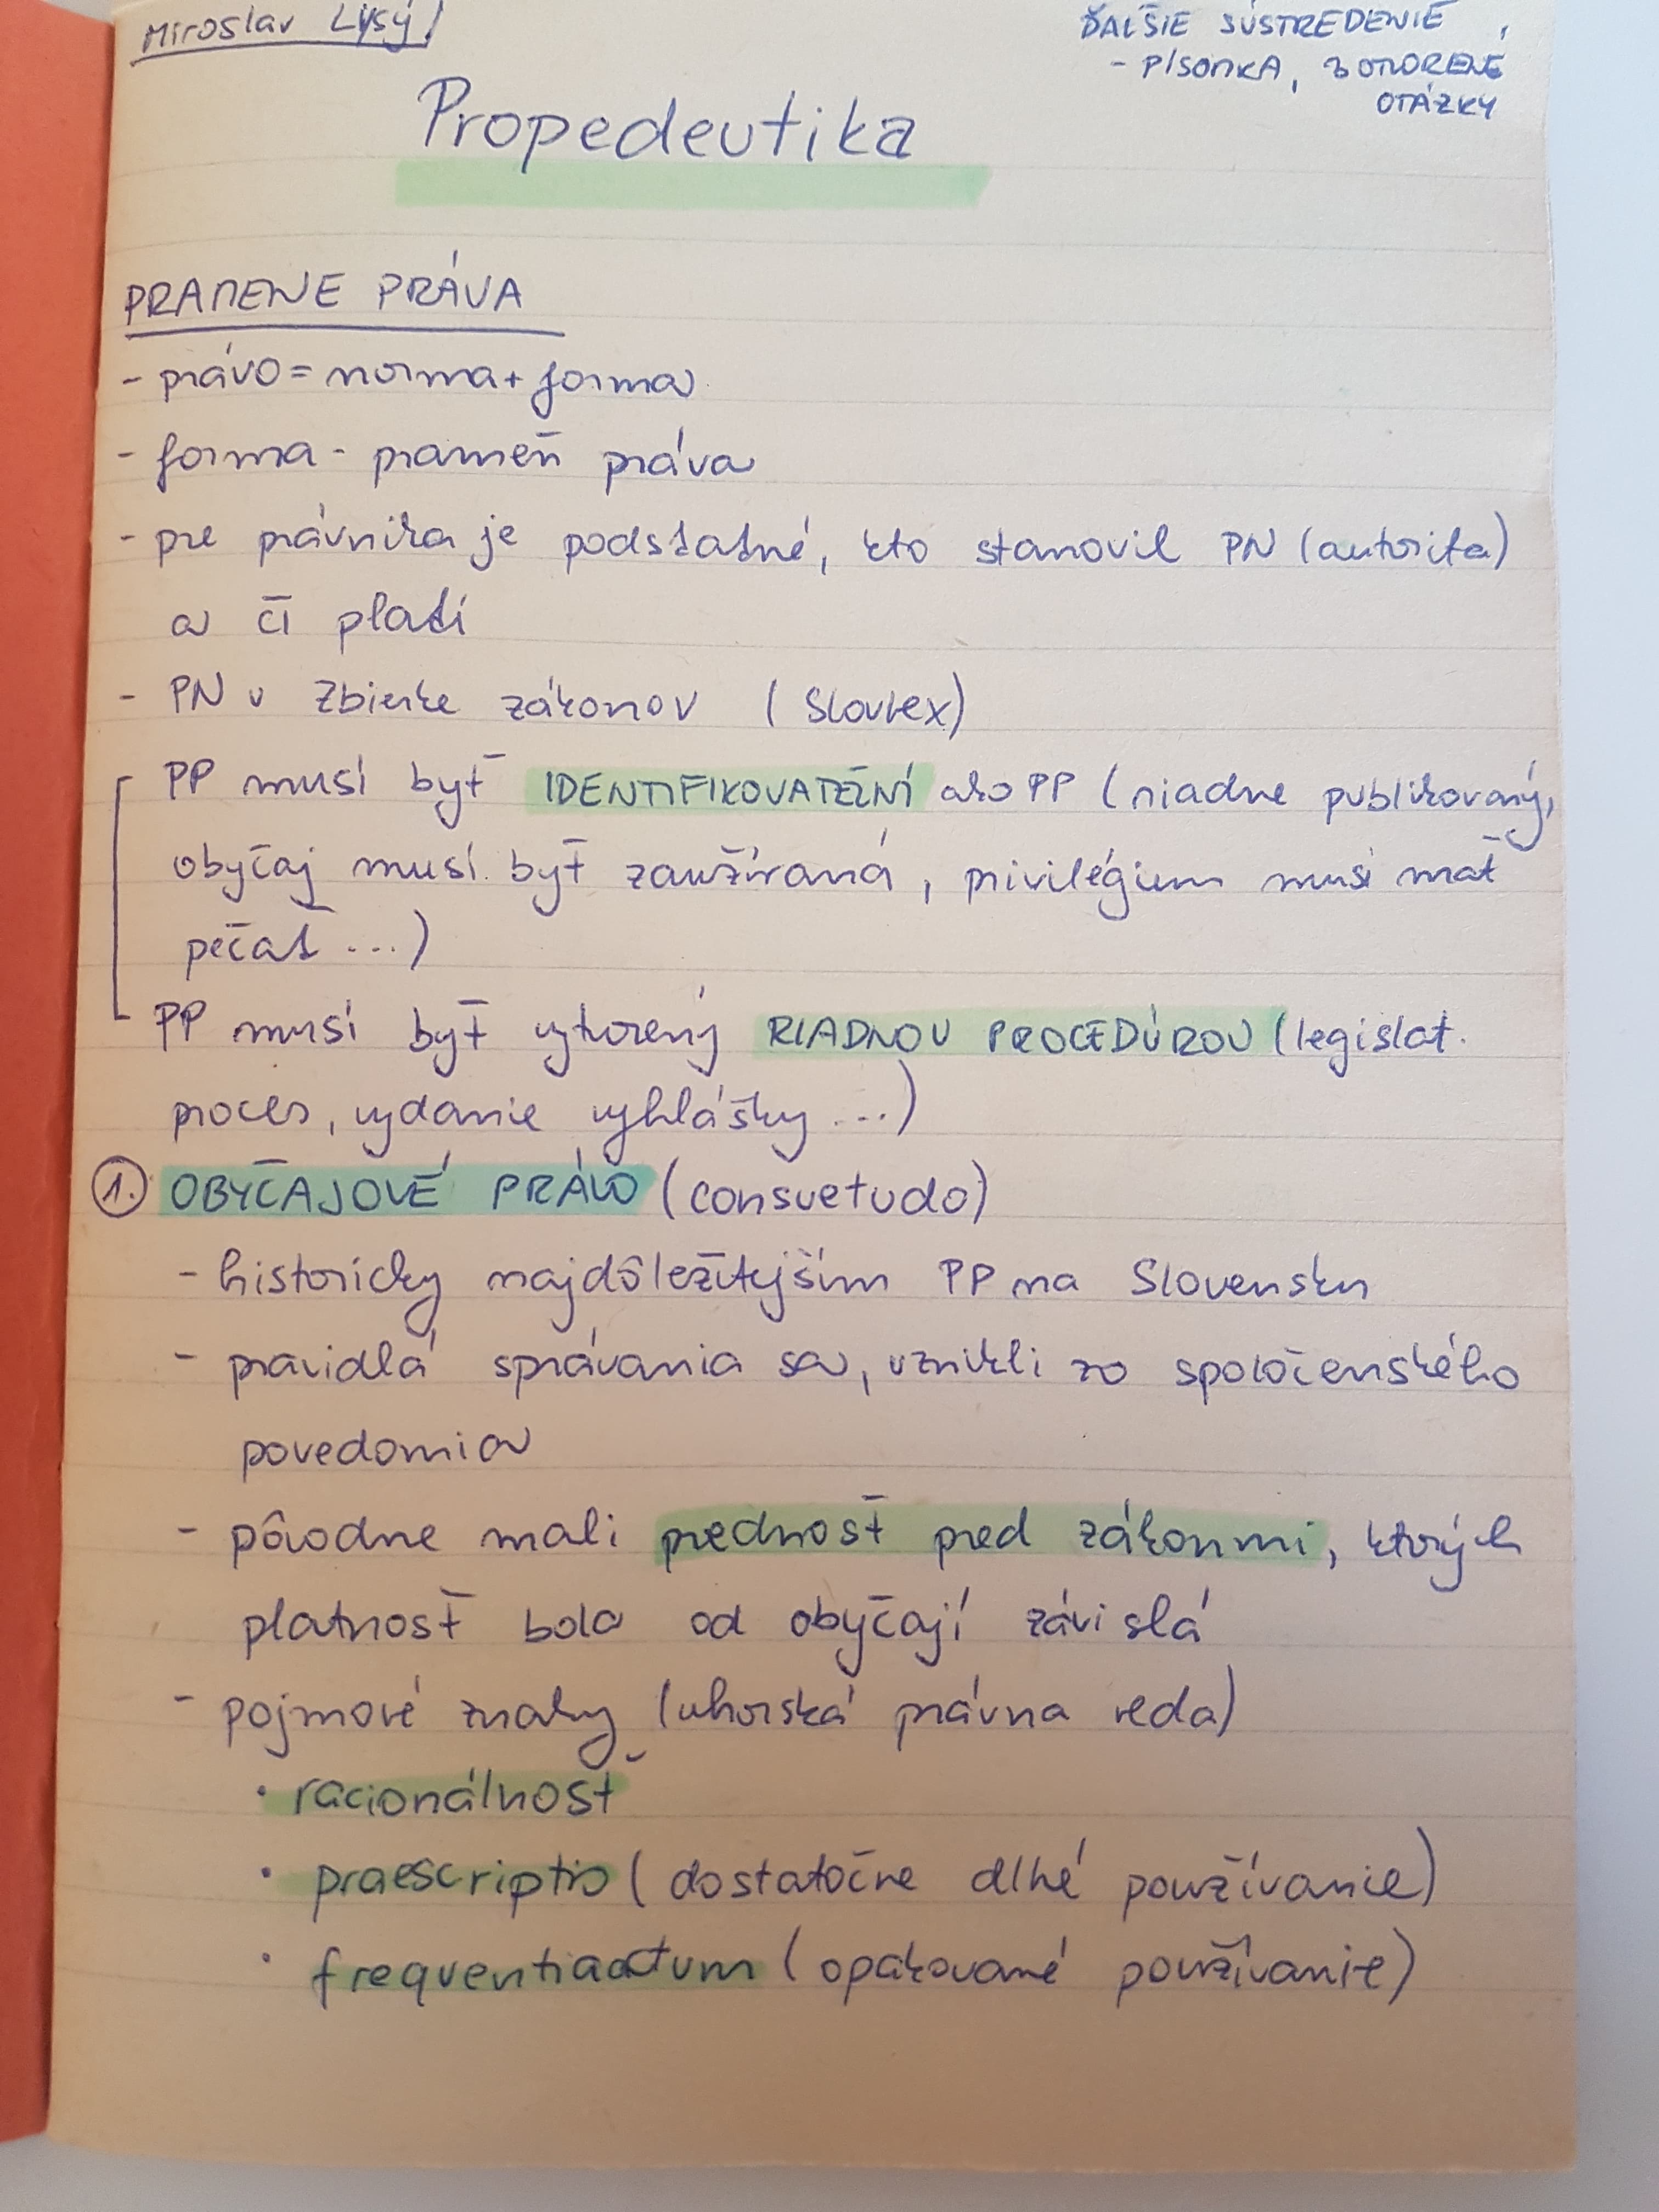 Miroslav Lysý
ĎALŠIE SÚSTREDENIE
- PÍSOMKA, 3 OTVORENÉ
OTÁZKY
Propedeutika
PRAMENE PRÁVA
- právo = norma + forma
- forma - prameň práva
- pre právnika je podstatné, kto stanovil PN (autorita)
a či platí
- PN v Zbierke zákonov (Slovlex)
PP musí byť IDENTIFIKOVATEĽNÍ ako PP (riadne publikovaný,
obyčaj musí byť zaužívaná, privilégium musí mať
pečať ...)
PP musí byť vytvorený RIADNOU PROCEDÚROU (legislat.
proces, vydanie vyhlášky ...)
1. OBYČAJOVÉ PRÁVO (consvetudo)
- historicky najdôležitejším PP na Slovensku
- pravidlá správania sa, vznikli zo spoločenského
povedomia
- pôvodne mali prednosť pred zákonmi, ktorých
platnosť bola od obyčají závislá
- pojmové znaky (uhorská právna veda)
• racionálnosť
• praescriptio (dostatočne dlhé používanie)
• frequentia actum (opakované používanie)